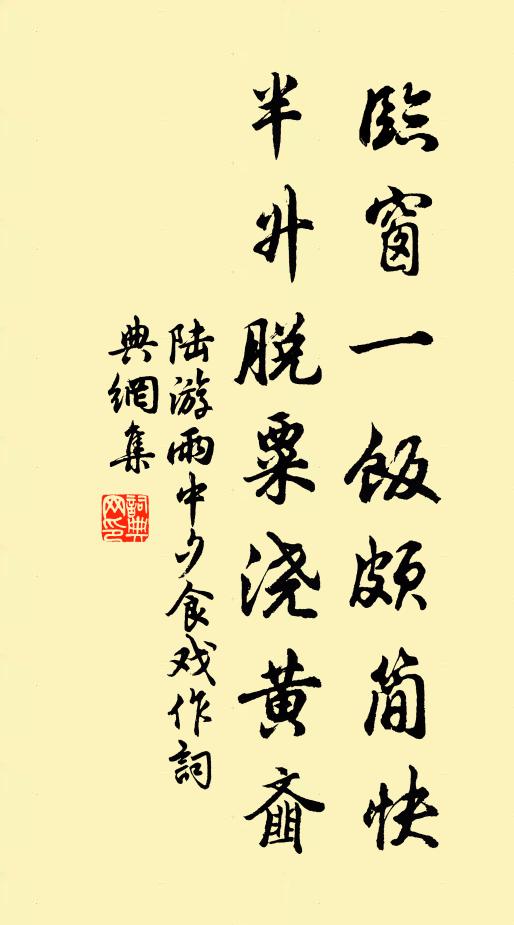 臨窗一飯頗简快
半升脱粟浇黄齑
陆游雨中夕食戏作詞
典網集
詞典
网印